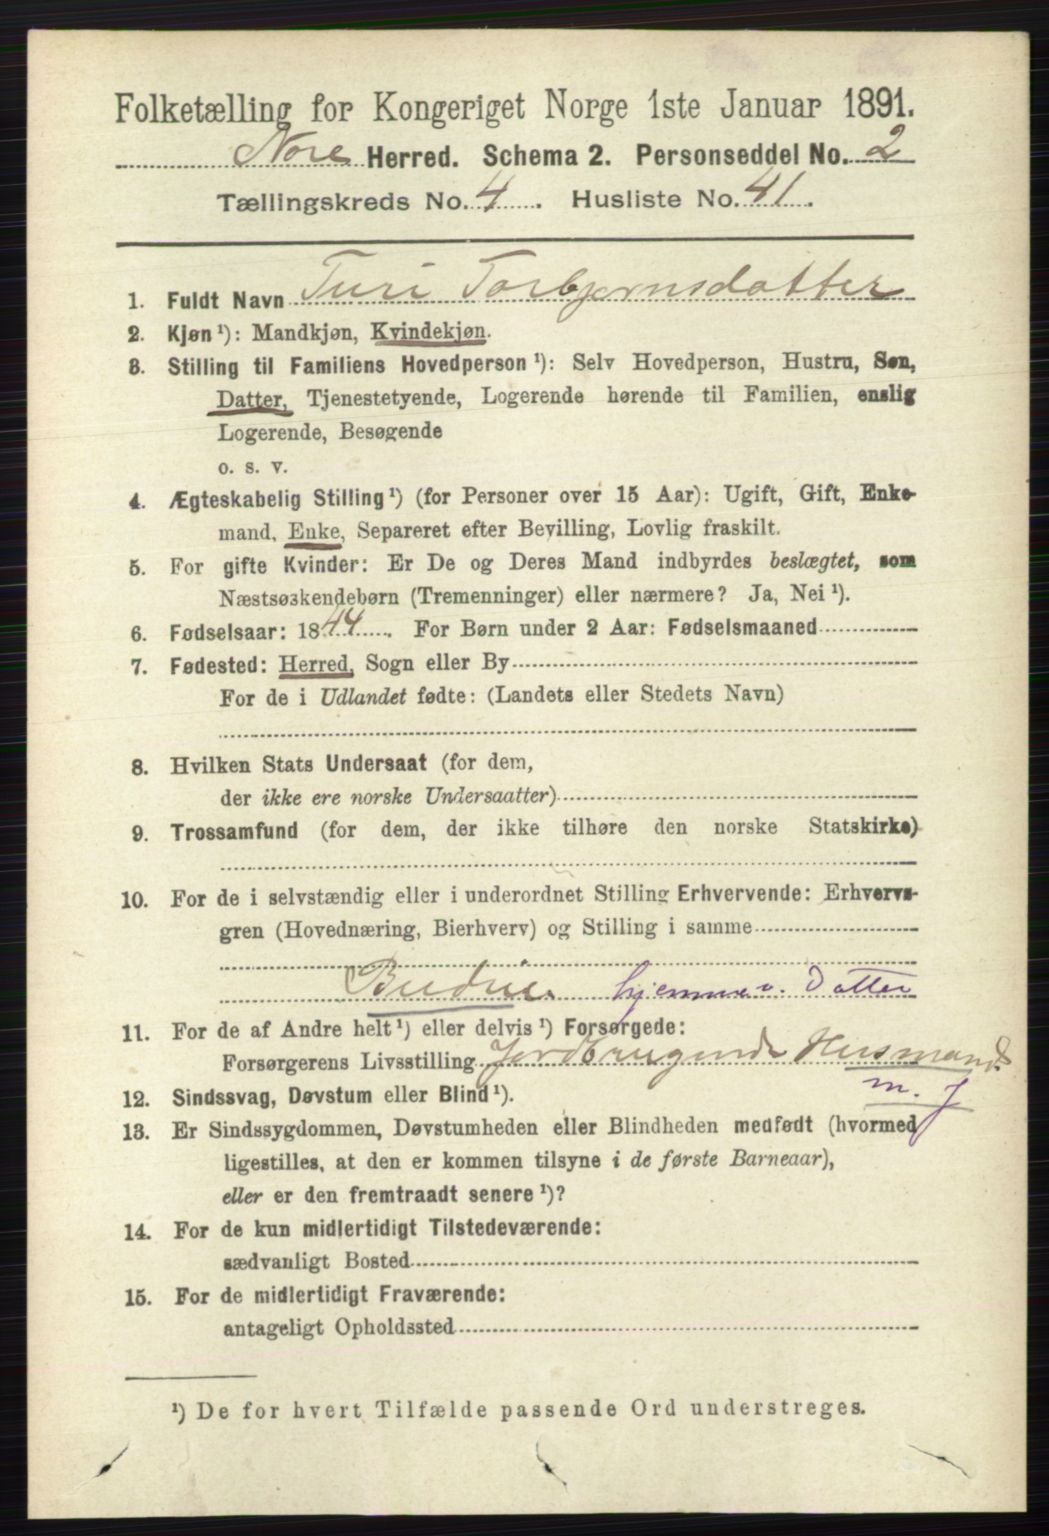 Folketælling for Kongeriget Norge 1ste Januar 1891.
Nore Herred. Schema 2. Personseddel No. 2
Tællingskreds No. 4. Husliste No. 41.
1. Fuldt Navn Turi Torbjørnsdatter
2. Kjøn ¹): Mandkjøn, Kvindekjøn.
3. Stilling til Familiens Hovedperson ¹): Selv Hovedperson, Hustru, Søn,
Datter, Tjenestetyende, Logerende hørende til Familien, enslig
Logerende, Besøgende
o. s. v.
4. Ægteskabelig Stilling ¹) (for Personer over 15 Aar): Ugift, Gift, Enke-
mand, Enke, Separeret efter Bevilling, Lovlig fraskilt.
5. For gifte Kvinder: Er De og Deres Mand indbyrdes beslægtet, som
Næstsøskendebørn (Tremenninger) eller nærmere? Ja, Nei ¹).
6. Fødselsaar: 1844. For Børn under 2 Aar: Fødselsmaaned
7. Fødested: Herred, Sogn eller By
For de i Udlandet fødte: (Landets eller Stedets Navn)
8. Hvilken Stats Undersaat (for dem,
der ikke ere norske Undersaatter)
9. Trossamfund (for dem, der ikke tilhøre den norske Statskirke)
10. For de i selvstændig eller i underordnet Stilling Erhvervende: Erhvervs-
gren (Hovednæring, Bierhverv) og Stilling i samme
Budeie. hjemmev. Datter
11. For de af Andre helt ¹) eller delvis ¹) Forsørgede:
Forsørgerens Livsstilling Jordbrugende Husmand
m. J
12. Sindssvag, Døvstum eller Blind ¹).
13. Er Sindssygdommen, Døvstumheden eller Blindheden medfødt (hvormed
ligestilles, at den er kommen tilsyne i de første Barneaar),
eller er den fremtraadt senere ¹)?
14. For de kun midlertidigt Tilstedeværende:
sædvanligt Bosted
15. For de midlertidigt Fraværende:
antageligt Opholdssted
¹) De for hvert Tilfælde passende Ord understreges.